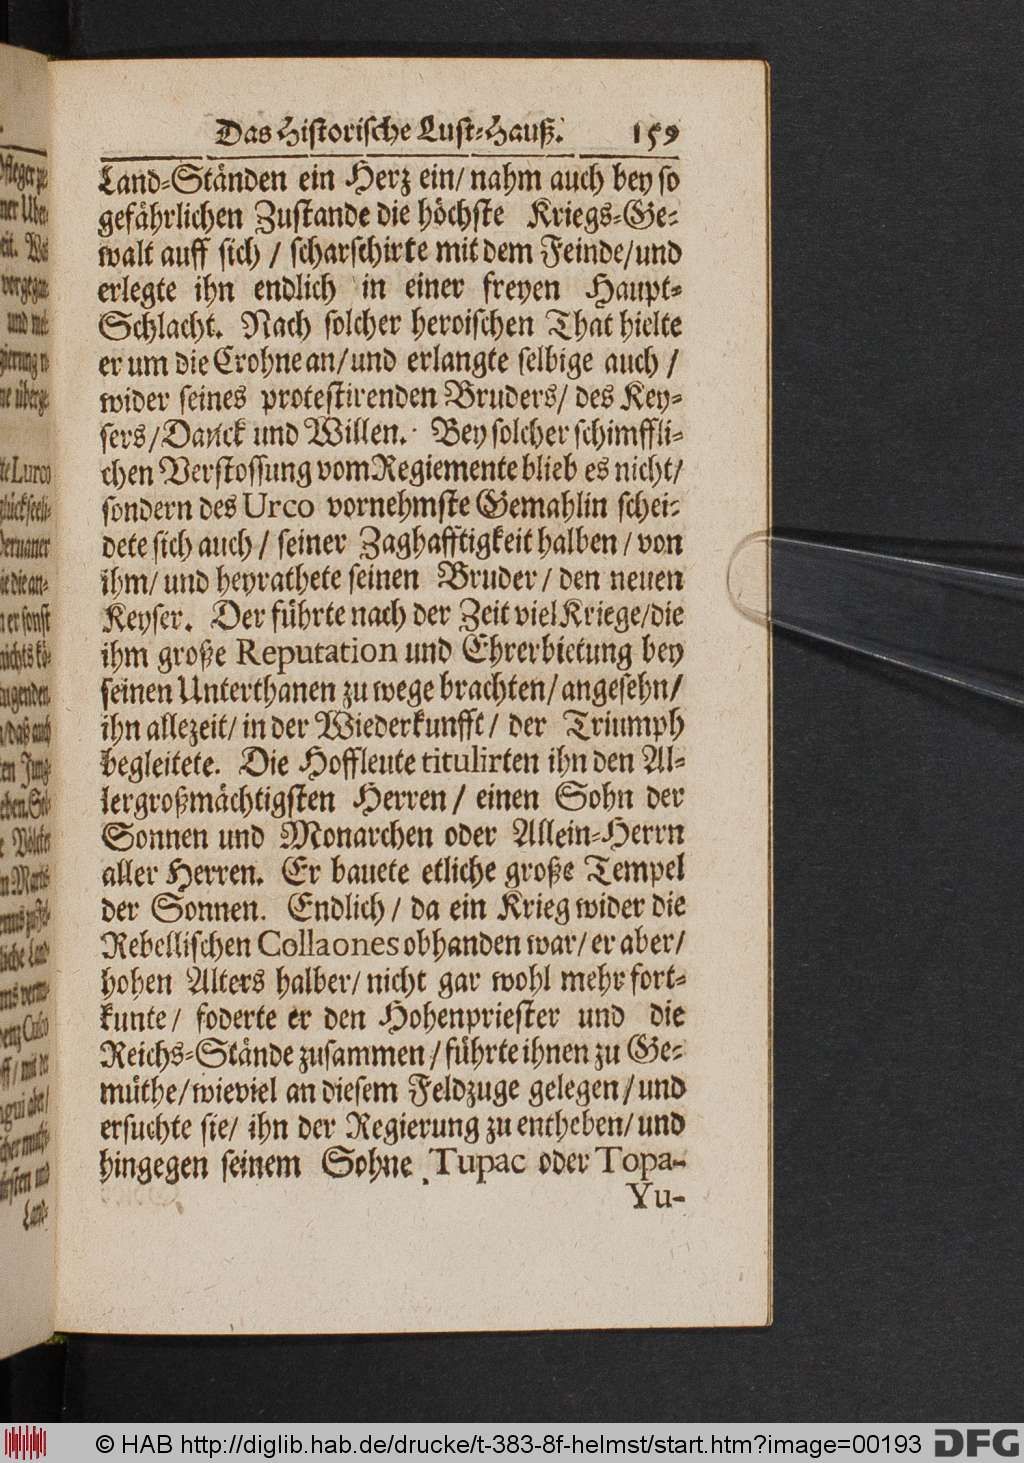 Das Historische Lust-Hauß. 159
Land-Ständen ein Herz ein/ nahm auch bey so
gefährlichen Zustande die höchste Kriegs-Ge-
walt auff sich / scharschirte mit dem Feinde/und
erlegte ihn endlich in einer freyen Haupt-
Schlacht. Nach solcher heroischen That hielte
er um die Crohne an/und erlangte selbige auch /
wider seines protestirenden Bruders/ des Key-
sers/Danck und Willen. Bey solcher schimffli-
chen Verstossung vom Regiemente blieb es nicht/
sondern des Urco vornehmste Gemahlin schei-
dete sich auch / seiner Zaghafftigkeit halben / von
ihm/ und heyrathete seinen Bruder / den neuen
Keyser. Der führte nach der Zeit viel Kriege/die
ihm große Reputation und Ehrerbietung bey
seinen Unterthanen zu wege brachten/ angesehn/
ihn allezeit/ in der Wiederkunfft/ der Triumph
begleitete. Die Hoffleute titulirten ihn den Al-
lergroßmächtigsten Herren / einen Sohn der
Sonnen und Monarchen oder Allein-Herrn
aller Herren. Er bauete etliche große Tempel
der Sonnen. Endlich / da ein Krieg wider die
Rebellischen Collaones obhanden war/ er aber/
hohen Alters halber/ nicht gar wohl mehr fort-
kunte/ foderte er den Hohenpriester und die
Reichs-Stände zusammen / führte ihnen zu Ge-
müthe/ wieviel an diesem Feldzuge gelegen / und
ersuchte sie/ ihn der Regierung zu entheben/ und
hingegen seinem Sohne Tupac oder Topa-
Yu-
© HAB http://diglib.hab.de/drucke/t-383-8f-helmst/start.htm?image=00193 DFG